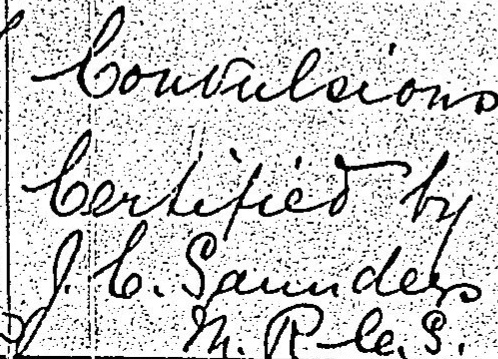 Convulsions
Certified by
J. C. Saunders
M. R. C. S.